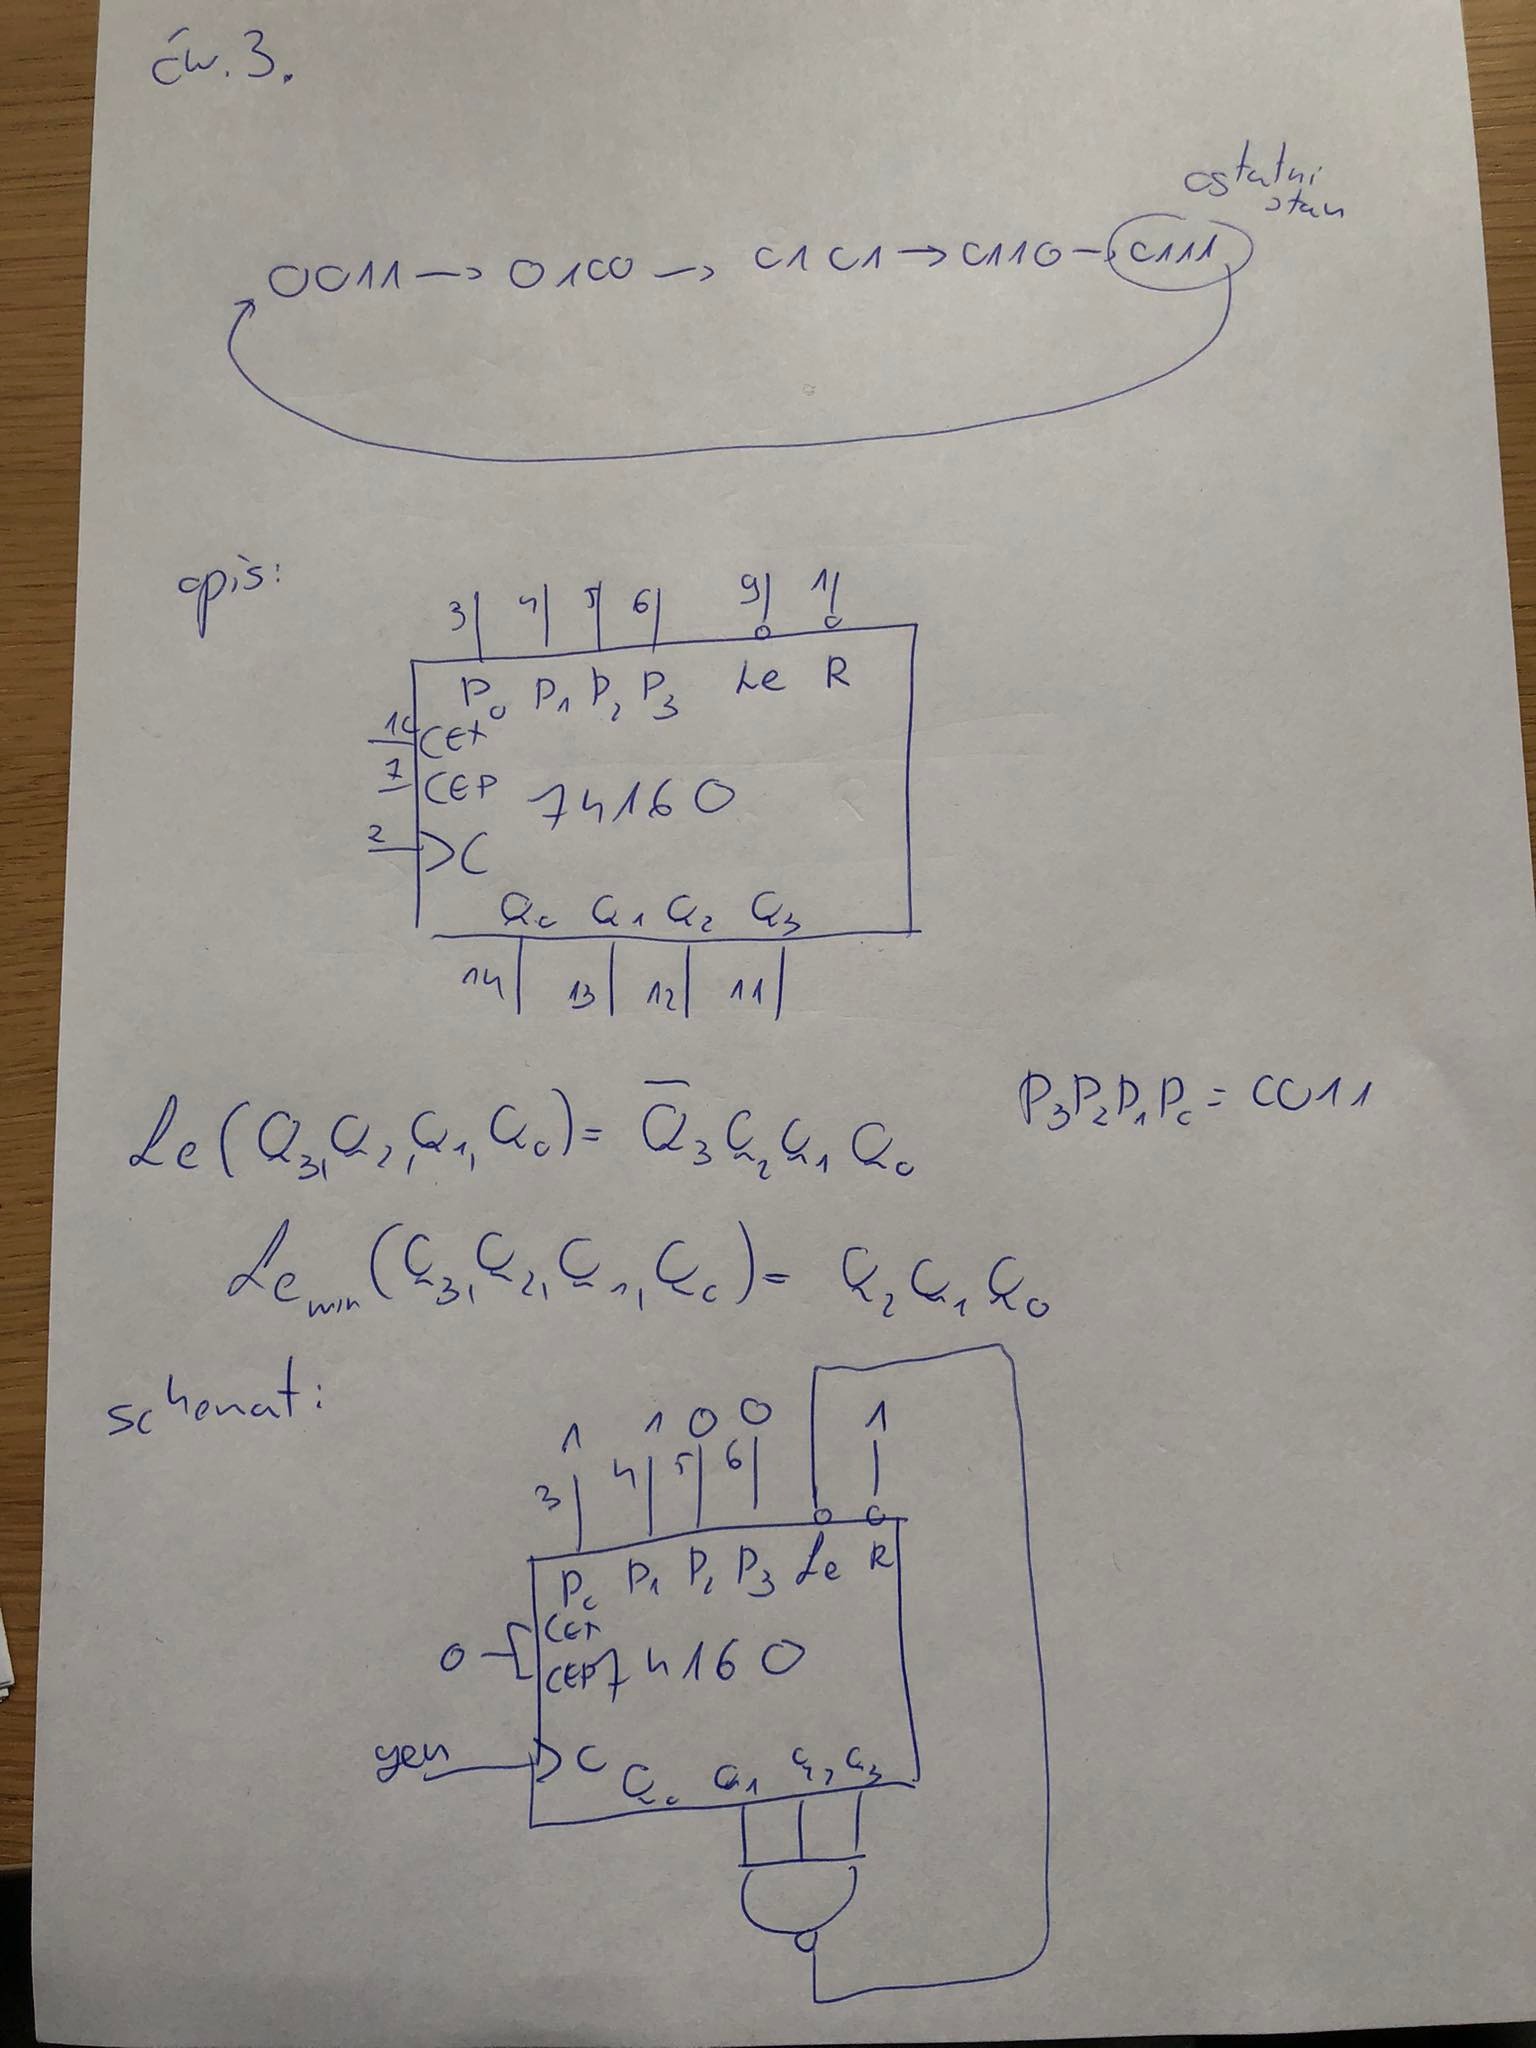 ćw. 3.
ostatni
stan
0011 → 0100 → 0101 → 0110 → 0111
opis:
3 4 5 6 9 1
P₀ P₁ P₂ P₃ Le R
10 CET
7 CEP 74160
2 C
Q₀ Q₁ Q₂ Q₃
14 13 12 11
Le(Q₃,Q₂,Q₁,Q₀) = Q̅₃Q₂Q₁Q₀ P₃P₂P₁P₀ = 0011
Le min (Q₃,Q₂,Q₁,Q₀) = Q₂Q₁Q₀
schemat:
1 1 0 0 1
3 4 5 6
P₀ P₁ P₂ P₃ Le R
CET
0 CEP 74160
gen C
Q₀ Q₁ Q₂ Q₃